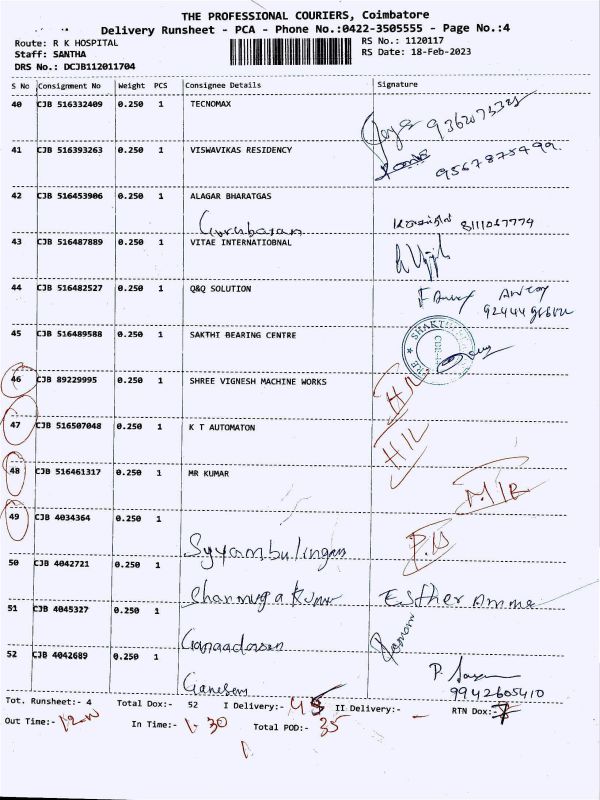 THE PROFESSIONAL COURIERS, Coimbatore
Delivery Runsheet - PCA - Phone No.:0422-3505555 - Page No.:4
Route: R K HOSPITAL RS No.: 1120117
Staff: SANTHA RS Date: 18-Feb-2023
DRS No.: DCJB112011704
S No Consignment No Weight PCS Consignee Details Signature
40 CJB 516332409 0.250 1 TECNOMAX
41 CJB 516393263 0.250 1 VISWAVIKAS RESIDENCY
9567875499.
42 CJB 516453906 0.250 1 ALAGAR BHARATGAS
Gurubaran
43 CJB 516487889 0.250 1 VITAE INTERNATIOBNAL
44 CJB 516482527 0.250 1 Q&Q SOLUTION
45 CJB 516489588 0.250 1 SAKTHI BEARING CENTRE
46 CJB 89229995 0.250 1 SHREE VIGNESH MACHINE WORKS
47 CJB 516507048 0.250 1 K T AUTOMATON
48 CJB 516461317 0.250 1 MR KUMAR
49 CJB 4034364 0.250 1
Syyambulingam
50 CJB 4042721 0.250 1
Shanmuga Kumar Esther Amma
51 CJB 4045327 0.250 1
52 CJB 4042689 0.250 1
Ganesan 9942605410
Tot. Runsheet:- 4 Total Dox:- 52 I Delivery:- 45 II Delivery:- - RTN Dox:- 7
Out Time:- In Time:- 1.30 Total POD:- 35